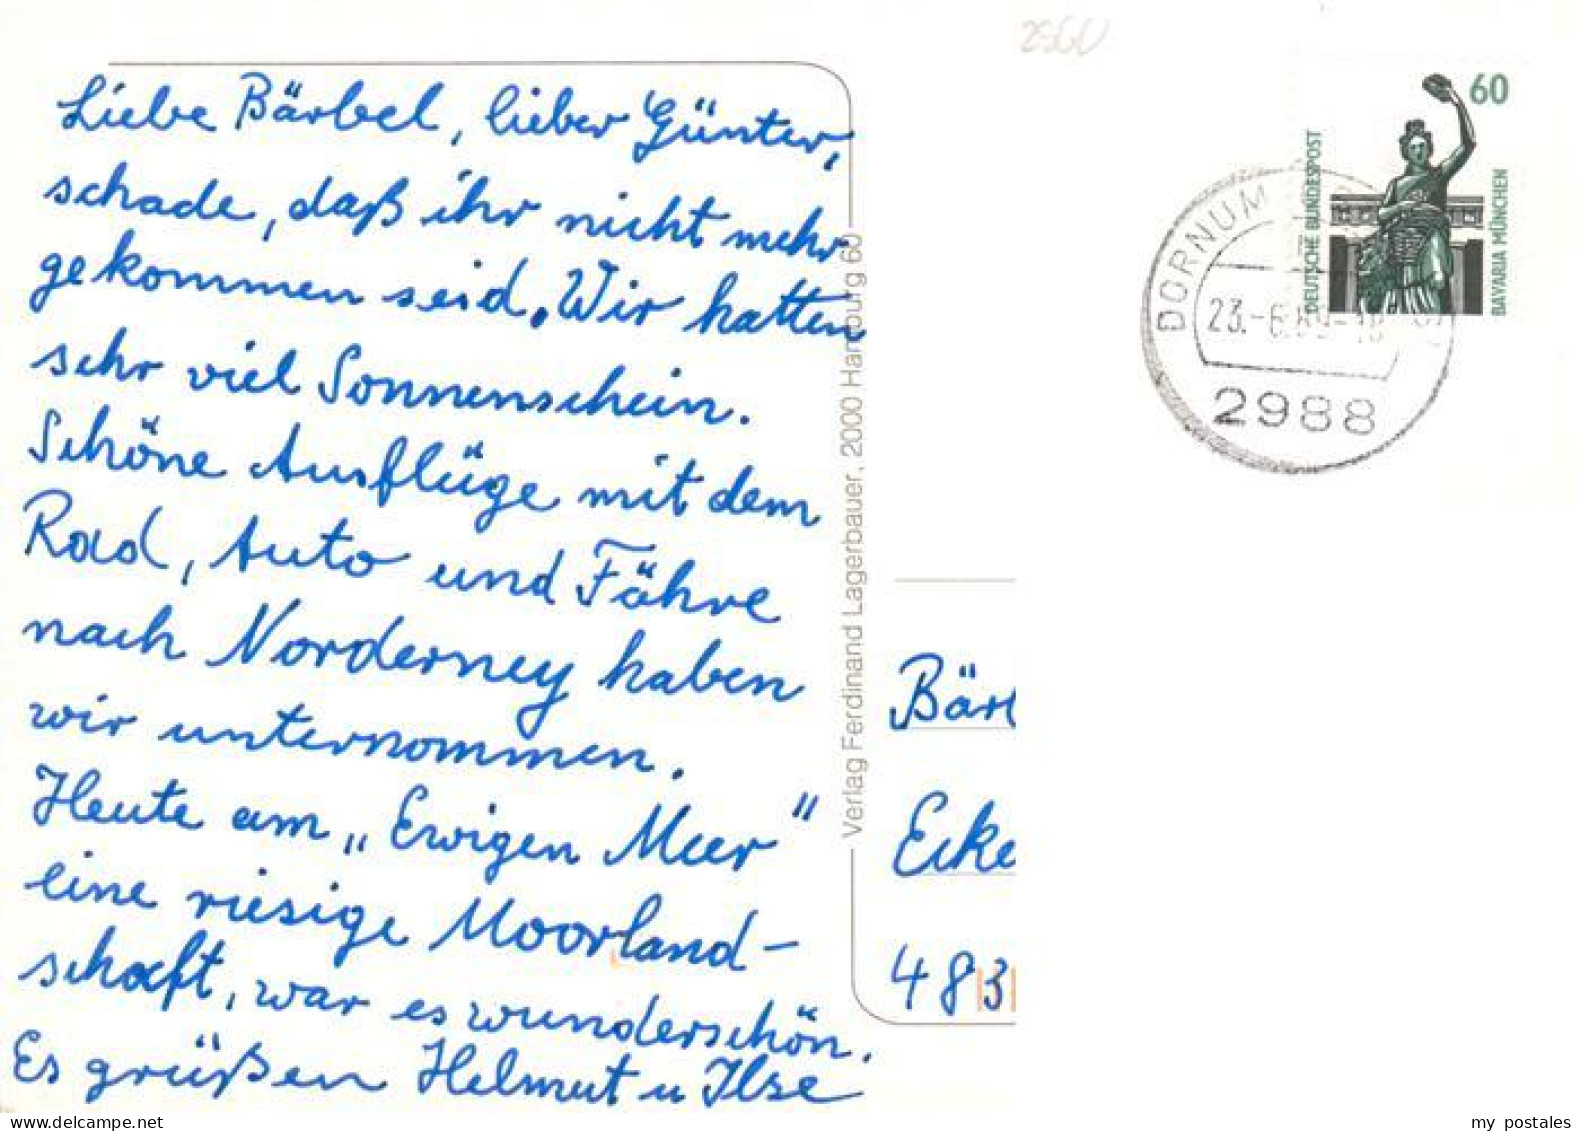 Liebe Bärbel, lieber Günter,
schade, daß ihr nicht mehr
gekommen seid. Wir hatten
sehr viel Sonnenschein.
Schöne Ausflüge mit dem
Rad, Auto und Fähre
nach Norderney haben
wir unternommen.
Heute am „Ewigen Meer"
eine riesige Moorland-
schaft, war es wunderschön.
Es grüßen Helmut u Ilse
Verlag Ferdinand Lagerbauer, 2000 Hamburg 60
60
DEUTSCHE BUNDESPOST
BAVARIA MÜNCHEN
DORNUM
2988
Bär
Ecke
483
my postales